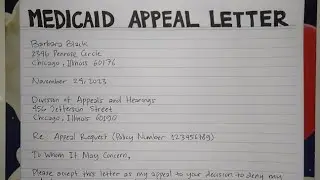 MEDICAID APPEAL LETTER
Barbara Black
2346 Penrose Circle
Chicago, Illinois 60176
November 29, 2023
Division of Appeals and Hearings
456 Jefferson Street
Chicago, Illinois 60190
Re: Appeal Request (Policy Number 123456789)
To Whom It May Concern,
Please accept this letter as my appeal to your decision to deny my